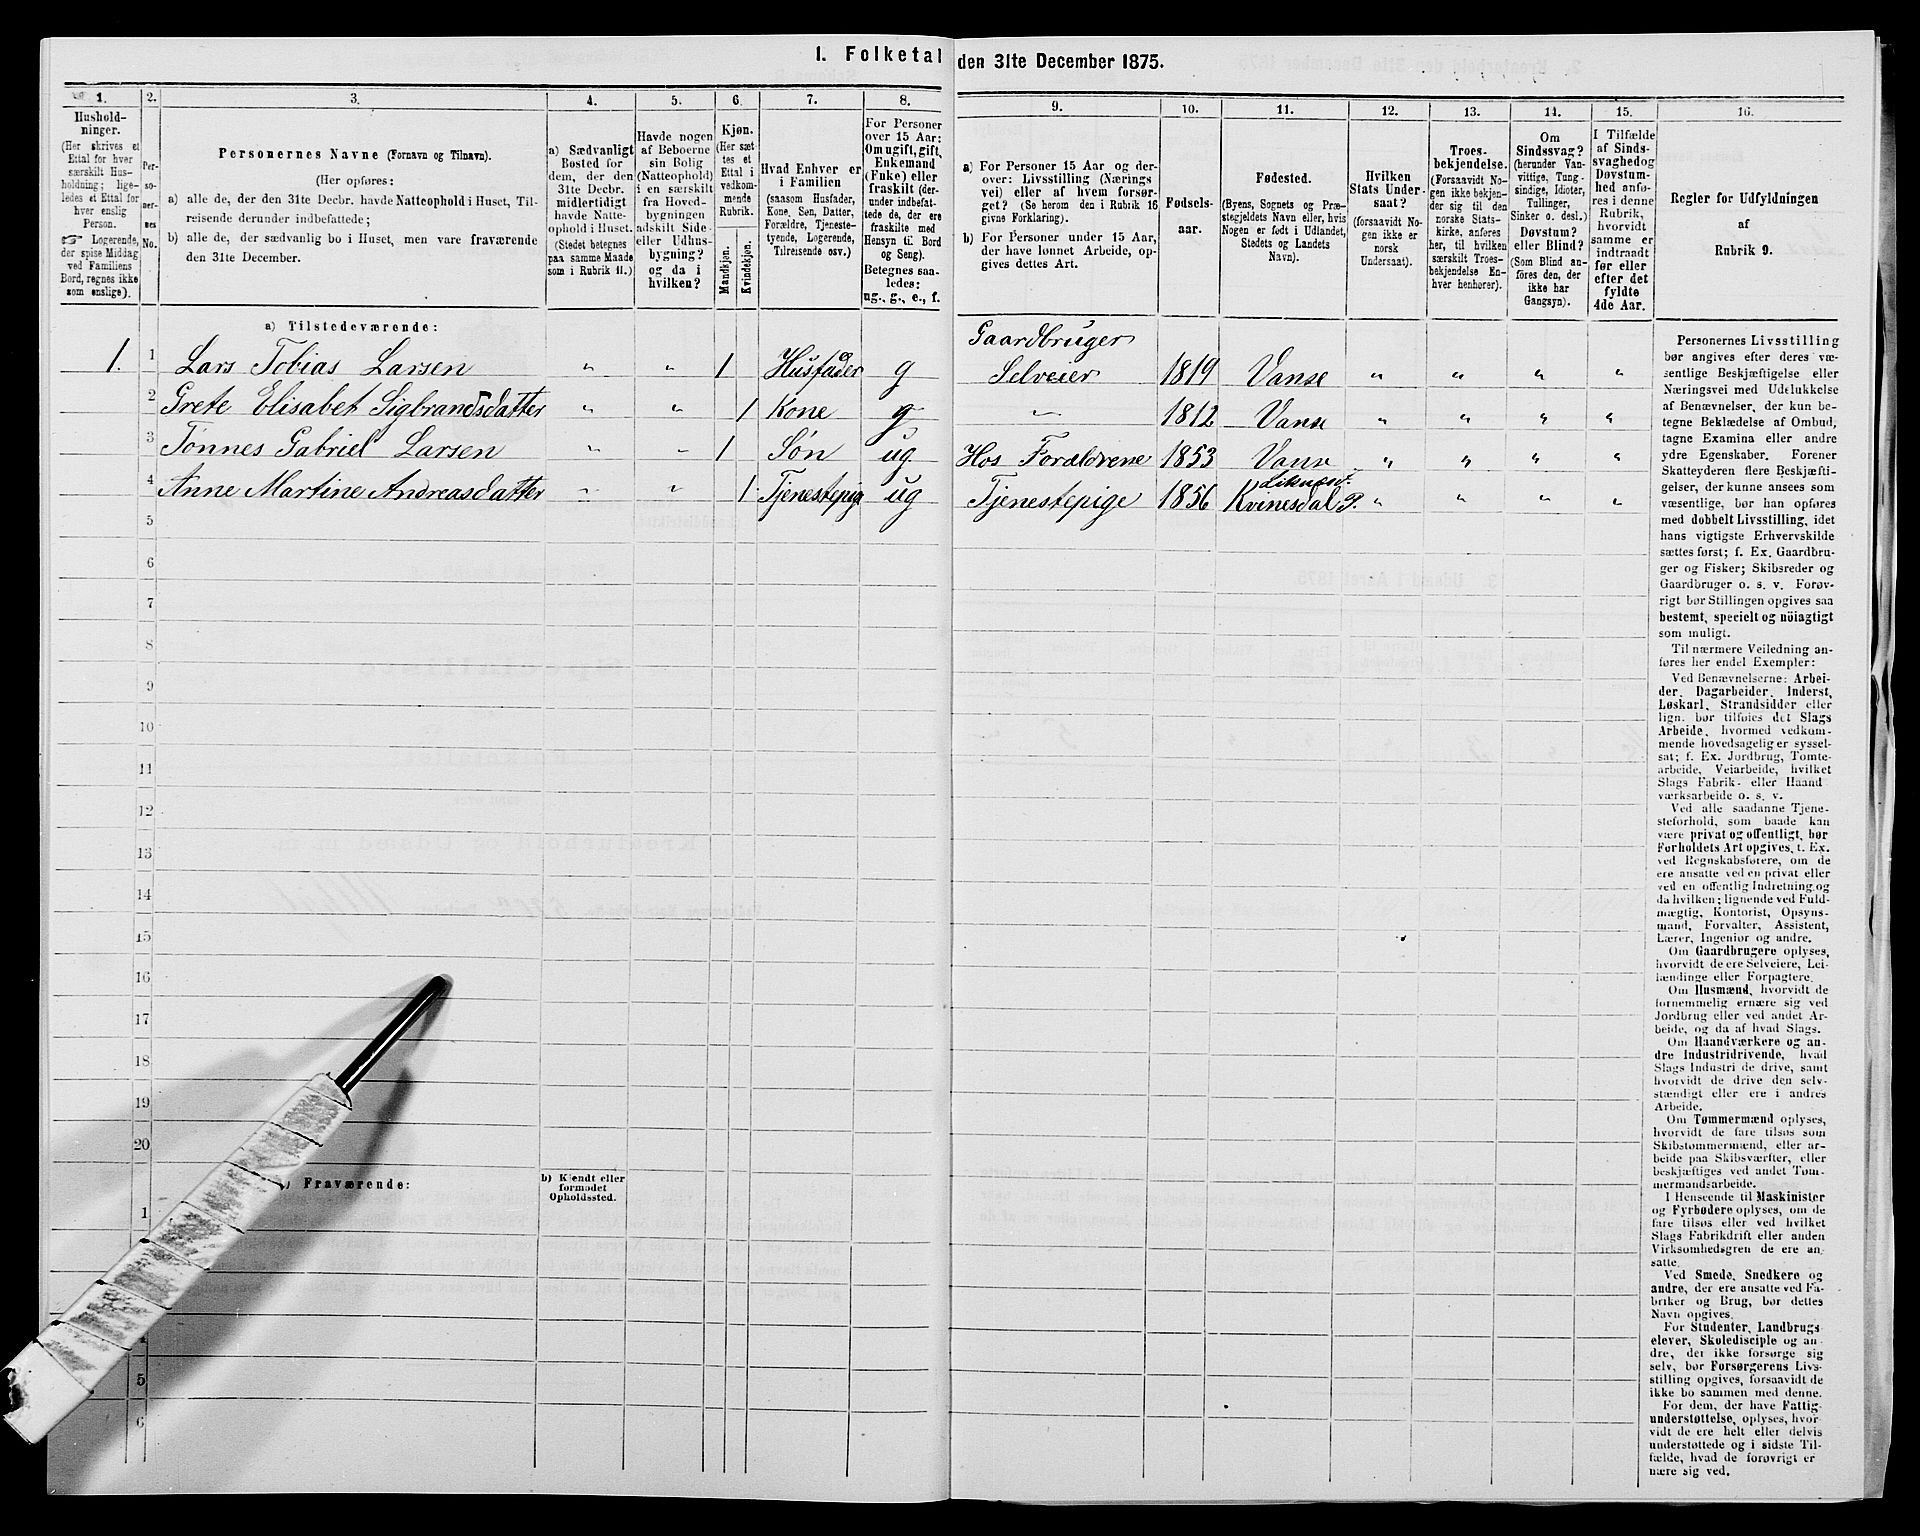 1. Folketal den 31te December 1875.
1.
Hushold-
ninger.
(Her skrives et
Ettal for hver
særskilt Hus-
holdning; lige-
ledes et Ettal for
hver enslig
Person.
Logerende,
der spise Middag
ved Familiens
Bord, regnes ikke
som enslige).
2.
Per-
so-
ner-
nes
No.
3.
Personernes Navne (Fornavn og Tilnavn).
(Her opføres:
a) alle de, der den 31te Decbr. havde Natteophold i Huset, Til-
reisende derunder indbefattede;
b) alle de, der sædvanlig bo i Huset, men vare fraværende
den 31te December.
4.
a) Sædvanligt
Bosted for
dem, der den
31te Decbr.
midlertidigt
havde Natte-
ophold i Huset.
(Stedet betegnes
paa samme Maade
som i Rubrik 11.)
5.
Havde nogen
af Beboerne
sin Bolig
(Natteophold)
i en særskilt
fra Hoved-
bygningen
adskilt Side-
eller Udhus-
bygning?
og da i
hvilken?
6.
Kjøn.
(Her sæt-
tes et
Ettal i
vedkom-
mende
Rubrik.
Mandkjøn.
Kvindekjøn.
7.
Hvad Enhver er
i Familien
(saasom Husfader,
Kone, Søn, Datter,
Forældre, Tjeneste-
tyende, Logerende,
Tilreisende osv.)
8.
For Personer
over 15 Aar:
Om ugift, gift,
Enkemand
(Enke) eller
fraskilt (der-
under indbefat-
tede de, der ere
fraskilte med
Hensyn til Bord
og Seng).
Betegnes saa-
ledes:
ug., g., e., f.
9.
a) For Personer 15 Aar og der-
over: Livsstilling (Nærings-
vei) eller af hvem forsør-
get? (Se herom den i Rubrik 16
givne Forklaring).
b) For Personer under 15 Aar,
der have lønnet Arbeide, op-
gives dettes Art.
10.
Fødsels-
aar.
11.
Fødested.
(Byens, Sognets og Præ-
stegjeldets Navn eller, hvis
Nogen er født i Udlandet,
Stedets og Landets
Navn).
12.
Hvilken
Stats Under-
saat?
(forsaavidt No-
gen ikke er
norsk
Undersaat).
13.
Troes-
bekjendelse.
(Forsaavidt No-
gen ikke bekjen-
der sig til den
norske Stats-
kirke, anføres
her, til hvilken
særskilt Troes-
bekjendelse En-
hver henhører).
14.
Om
Sindssvag?
(herunder Van-
vittige, Tung-
sindige, Idioter,
Tullinger,
Sinker o. desl.)
Døvstum?
eller Blind?
(Som Blind an-
føres den, der
ikke har
Gangsyn).
15.
I Tilfælde
af Sinds-
svaghed og
Døvstum-
hed anfø-
res i denne
Rubrik,
hvorvidt
samme er
indtraadt
før eller
efter det
fyldte
4de Aar.
16.
Regler for Udfyldningen
af
Rubrik 9.
a) Tilstedeværende:
1. 1 Lars Tobias Larsen " " 1 Husfader g Gaardbruger Selveier 1819 Vanse " " " "
2 Grete Elisabet Sigbrandsdatter " " 1 Kone g 1812 Vanse " " " "
3 Tønnes Gabriel Larsen " " 1 Søn ug Hos Forældrene 1853 Vanse " " " "
4 Anne Martine Andreasdatter " " 1 Tjenestepige ug Tjenestepige 1856 Kvinesdal P. " " " "
5
6
7
8
9
10
11
12
13
14
15
16
17
18
19
20
Fraværende:
b) Kjendt eller
formodet
Opholdssted.
1
5
6
Personernes Livsstilling
bør angives efter deres væ-
sentlige Beskjæftigelse eller
Næringsvei med Udelukkelse
af Benævnelser, der kun be-
tegne Beklædelse af Ombud,
tagne Examina eller andre
ydre Egenskaber. Forener
Skatteyderen flere Beskjæfti-
gelser, der kunne ansees som
væsentlige, bør han opføres
med dobbelt Livsstilling, idet
hans vigtigste Erhvervskilde
sættes først; f. Ex. Gaardbru-
ger og Fisker; Skibsreder og
Gaardbruger o. s. v. Forøv-
rigt bør Stillingen opgives saa
bestemt, specielt og nöiagtigt
som muligt.
Til nærmere Veiledning an-
føres her endel Exempler:
Ved Benævnelserne: Arbei-
der, Dagarbeider, Inderst,
Løskarl, Strandsidder eller
lign. bør tilføies det Slags
Arbeide, hvormed vedkom-
mende hovedsagelig er syssel-
sat; f. Ex. Jordbrug, Tomte-
arbeide, Veiarbeide, hvilket
Slags Fabrik- eller Haand
værksarbeide o. s. v.
Ved alle saadanne Tjene-
steforhold, som baade kan
være privat og offentligt, bør
Forholdets Art opgives, f. Ex.
ved Regnskabsførere, om de
ere ansatte ved en privat eller
ved en offentlig Indretning og
da hvilken; lignende ved Fuld-
mægtig, Kontorist, Opsyns-
mand, Forvalter, Assistent,
Lærer, Ingeniør og andre.
Om Gaardbrugere oplyses,
hvorvidt de ere Selveiere, Lei-
lændinge eller Forpagtere.
Om Husmænd, hvorvidt de
fornemmelig ernære sig ved
Jordbrug eller ved andet Ar-
beide, og da af hvad Slags.
Om Haandværkere og an-
dre Industridrivende, hvad
Slags Industri de drive, samt
hvorvidt de drive den selv-
stændigt eller ere i andres
Arbeide.
Om Tømmermænd oplyses,
hvorvidt de fare tilsøs som
Skibstømmermænd, eller ar-
beide paa Skibsværfter, eller
beskjæftiges ved andet Tøm-
mermandsarbeide.
I Henseende til Maskinister
og Fyrbødere oplyses, om de
fare tilsøs eller ved hvilket
Slags Fabrikdrift eller anden
Virksomhedsgren de ere an-
satte.
Ved Smede, Snedkere og
andre, der ere ansatte ved Fa-
briker og Brug, bør dettes
Navn opgives.
For Studenter, Landbrugs
elever, Skoledisciple og an-
dre, der ikke forsørge sig
selv, bør Forsørgerens Livs-
stilling opgives, forsaavidt de
ikke bo sammen med denne.
For dem, der have Fattig-
understøttelse, oplyses, hvor-
vidt de ere helt eller delvis
understøttede og i sidste Til-
fælde, hvad de forøvrigt er
nære sig ved.